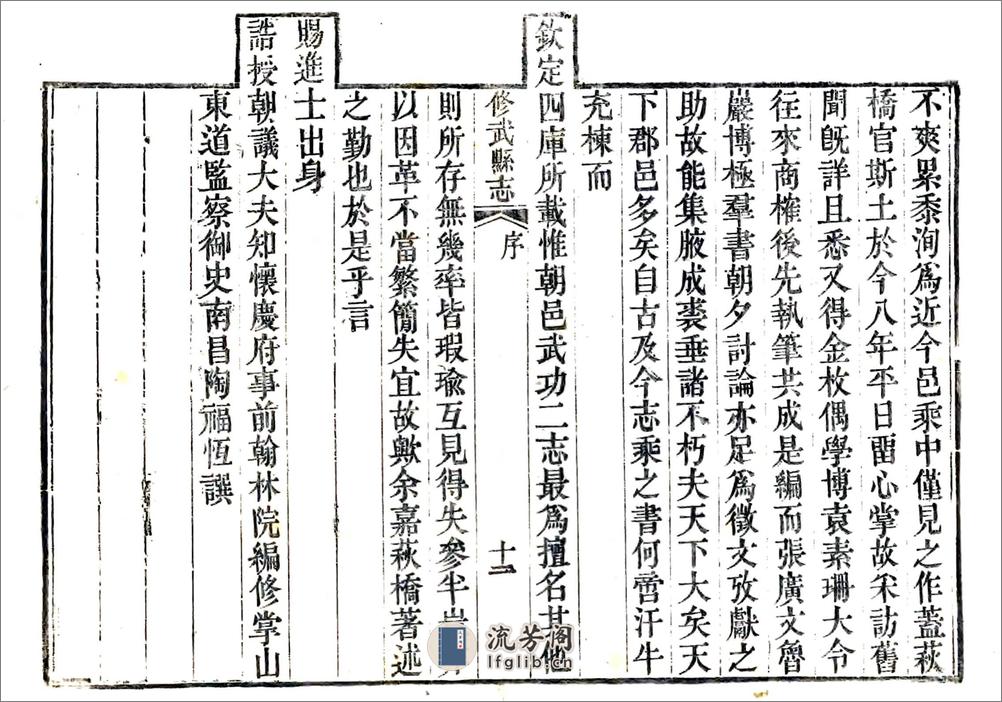 不爽累黍洵爲近今邑乘中僅見之作蓋萩
橋官斯土於今八年平日畱心掌故采訪舊
聞旣詳且悉又得金枚偶學博袁素珊大令
往來商榷後先執筆共成是編而張廣文魯
巖博極羣書朝夕討論亦足爲徵文攷獻之
助故能集腋成裘垂諸不朽夫天下大矣天
下郡邑多矣自古及今志乘之書何啻汗牛
充棟而
欽定四庫所載惟朝邑武功二志最爲擅名其他
修武縣志 序 十二
則所存無幾率皆瑕瑜互見得失參半豈
以因革不當繁簡失宜故歟余嘉萩橋著述
之勤也於是乎言
賜進士出身
誥授朝議大夫知懷慶府事前翰林院編修掌山
東道監察御史南昌陶福恆譔
流芳閣
lfglib.cn